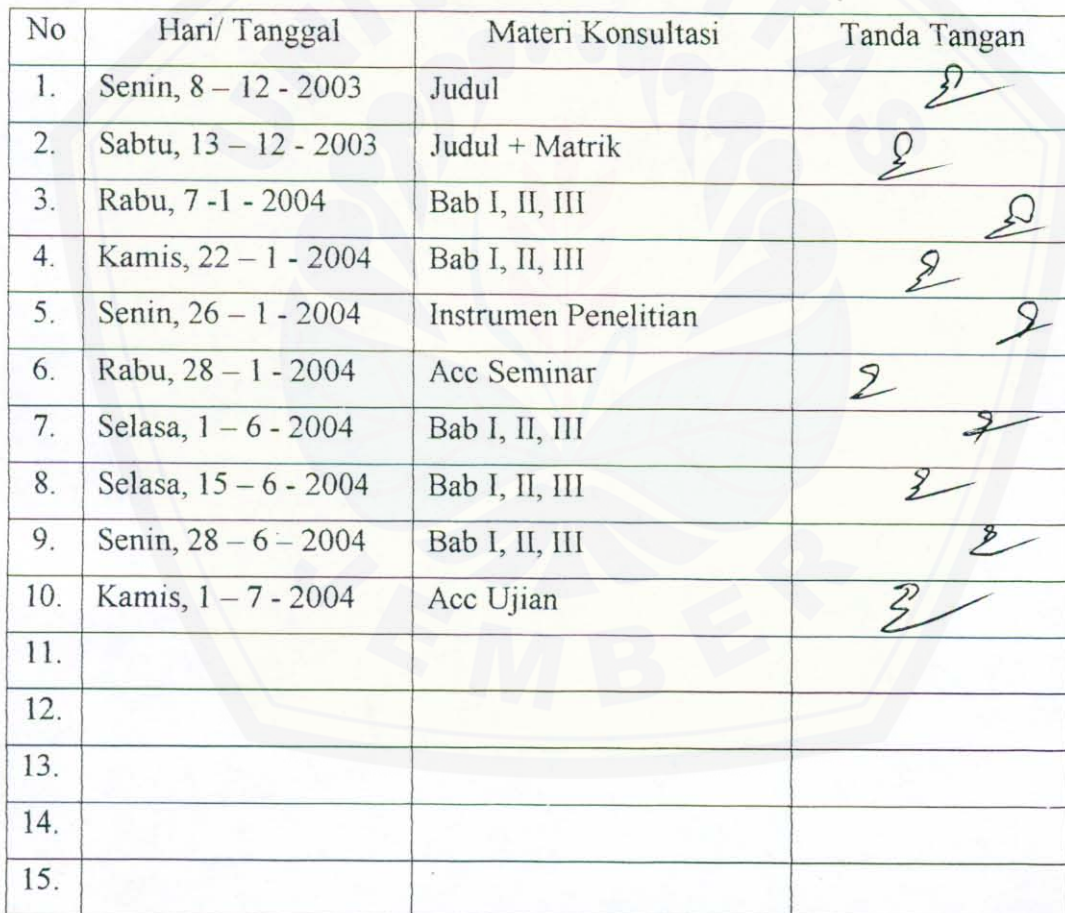 No Hari/ Tanggal Materi Konsultasi Tanda Tangan
1. Senin, 8 – 12 - 2003 Judul
2. Sabtu, 13 – 12 - 2003 Judul + Matrik
3. Rabu, 7 -1 - 2004 Bab I, II, III
4. Kamis, 22 – 1 - 2004 Bab I, II, III
5. Senin, 26 – 1 - 2004 Instrumen Penelitian
6. Rabu, 28 – 1 - 2004 Acc Seminar
7. Selasa, 1 – 6 - 2004 Bab I, II, III
8. Selasa, 15 – 6 - 2004 Bab I, II, III
9. Senin, 28 – 6 – 2004 Bab I, II, III
10. Kamis, 1 – 7 - 2004 Acc Ujian
11.
12.
13.
14.
15.
JEMBER